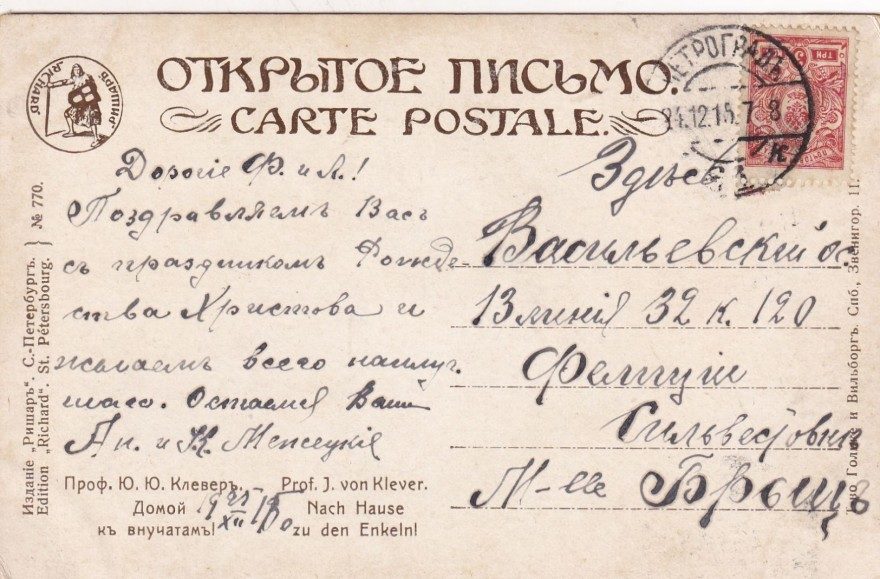 ОТКРЫТОЕ ПИСЬМО.
CARTE POSTALE.
„РИШАРЪ“
„RICHARD“
ПЕТРОГРАДЪ
24.12.15.7-8
ТРИ
Дорогіе Ф. и Л.!
Поздравляемъ Васъ
съ праздникомъ Рожде-
ства Христова и
желаемъ всего наилуч.
шаго. Остаемся Ваши
Ан. и К.
19 25/XII 15
Здѣсь
Васильевскій ос.
13 линія 32 к. 120
Фелиціи
Сильвестровнѣ
M-lle Брыцъ
Проф. Ю. Ю. Клеверъ.
Домой
къ внучатамъ!
Prof. J. von Klever.
Nach Hause
zu den Enkeln!
Изданіе „Ришаръ“. С.-Петербургъ.
Edition „Richard“. St. Pétersbourg.
№ 770.
Т-во Голике и Вильборгъ. Спб., Звенигор. 11.